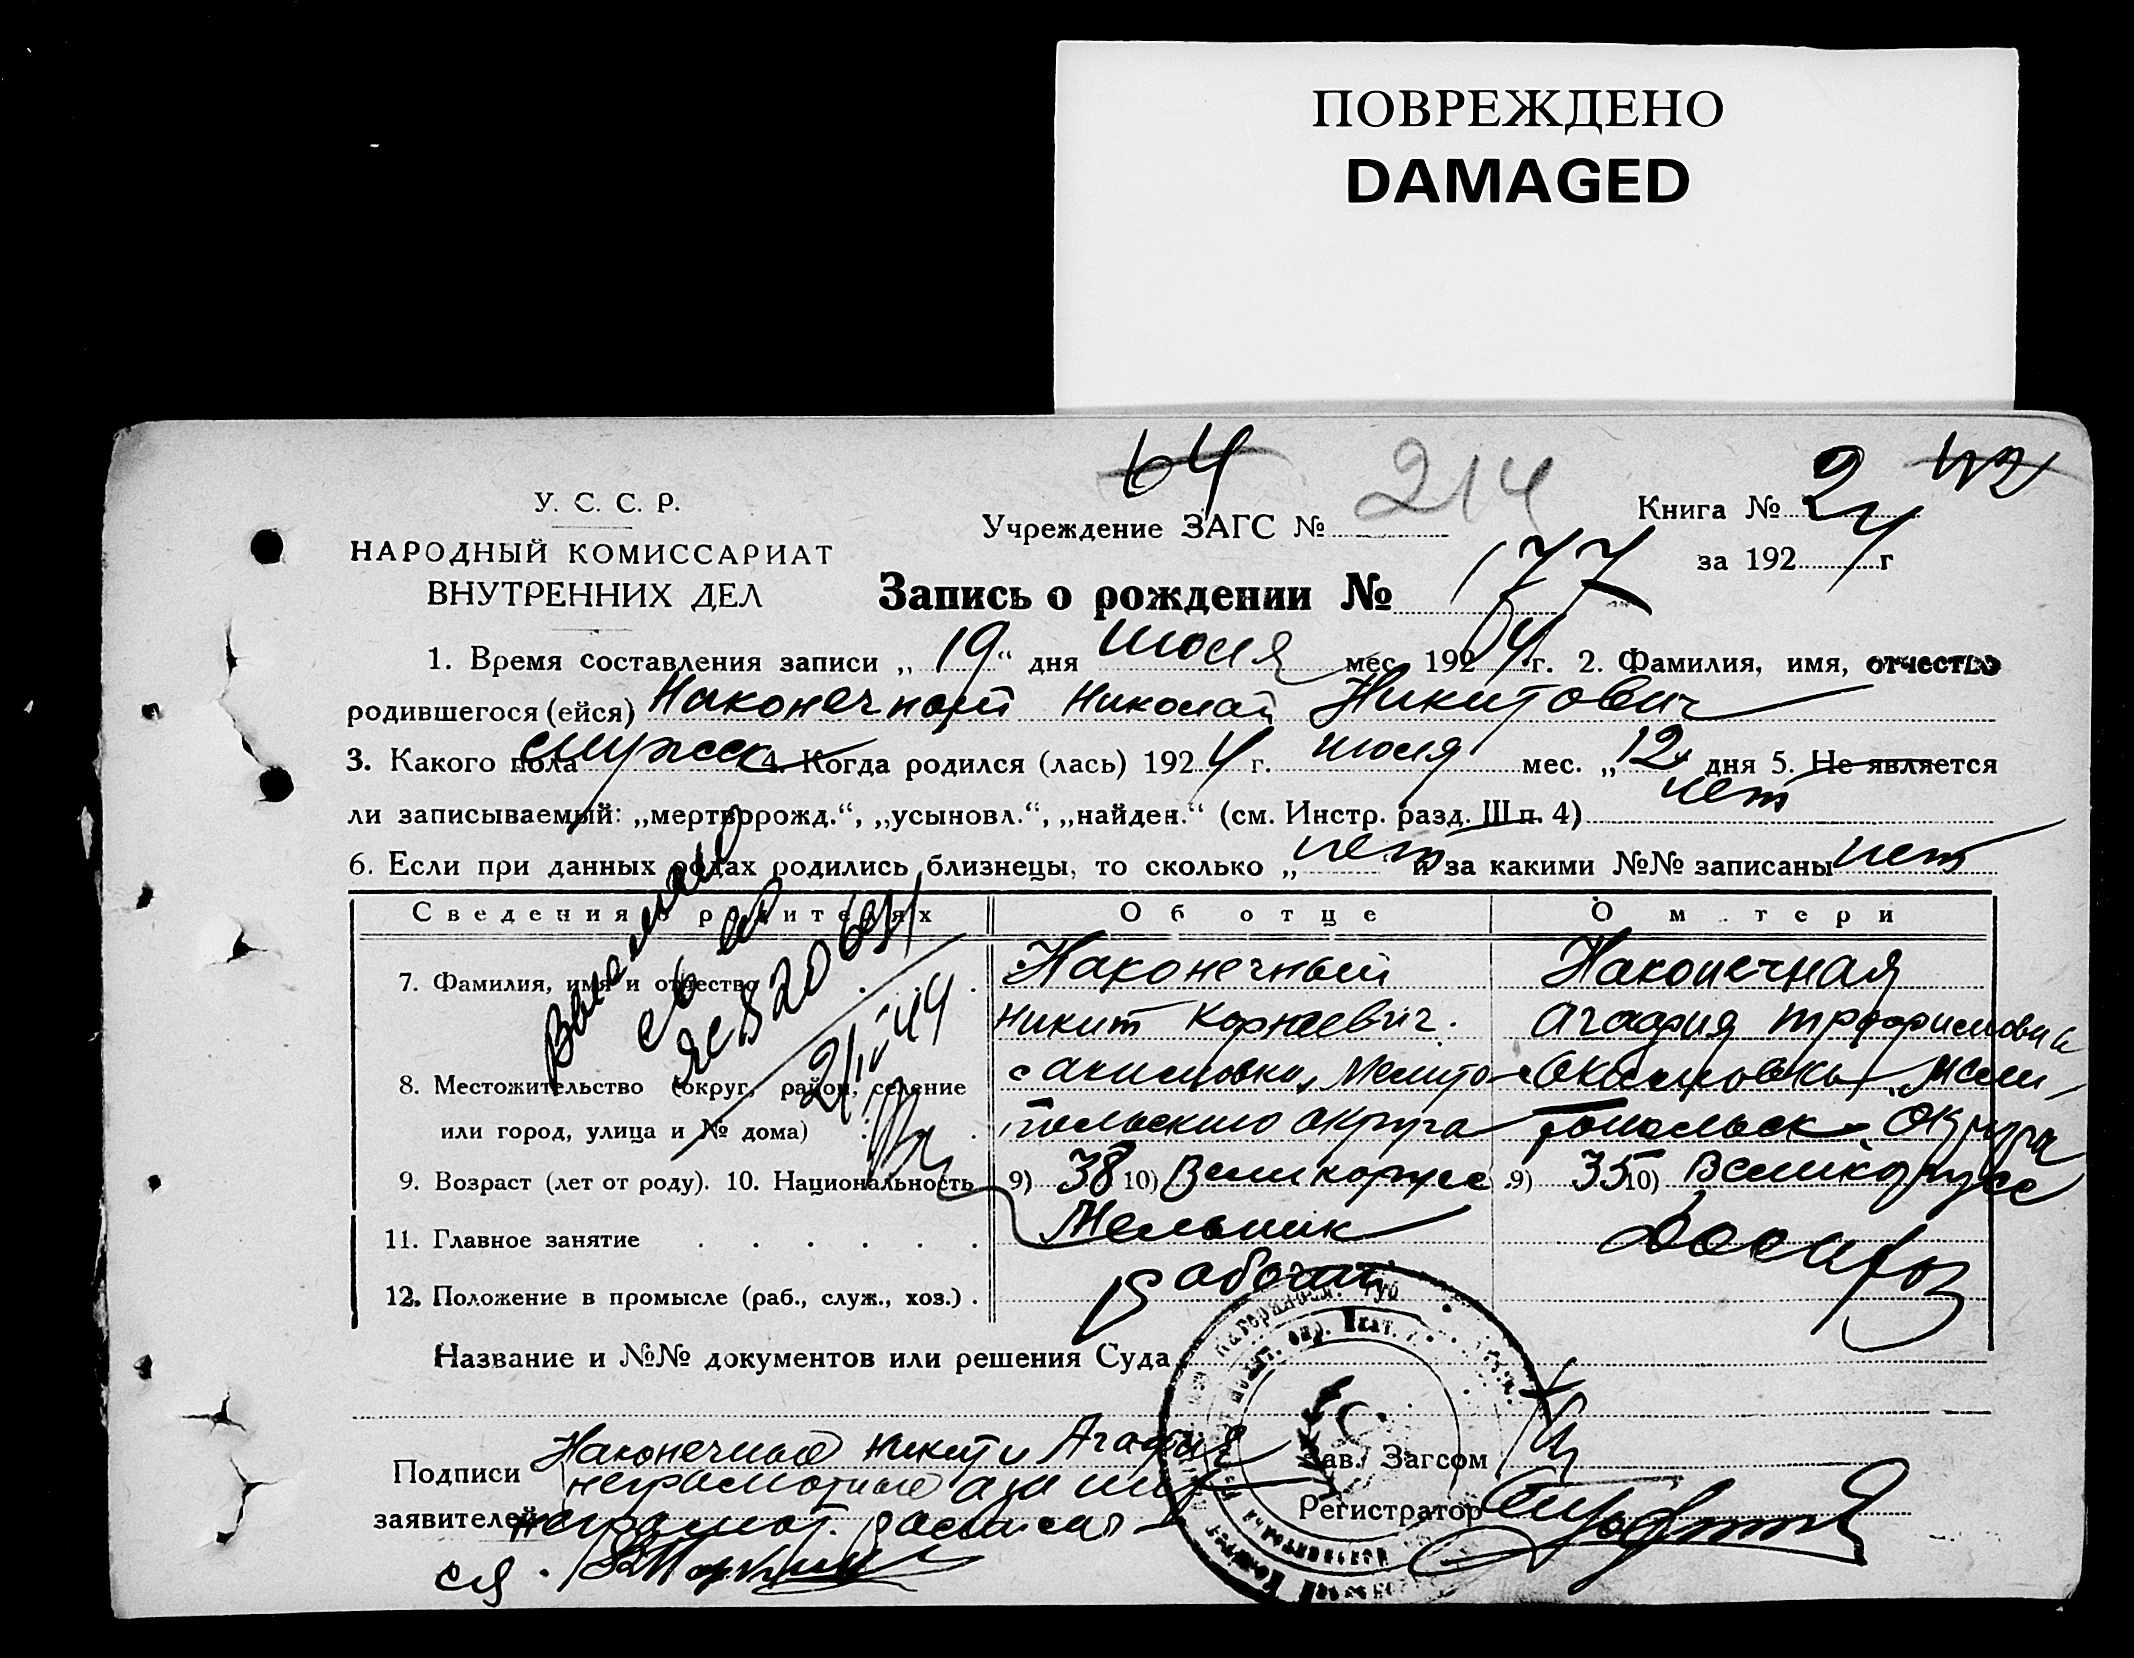 ПОВРЕЖДЕНО
DAMAGED
64 214 Книга № 2 42
У. С. С. Р.
Учреждение ЗАГС №
НАРОДНЫЙ КОМИССАРИАТ
за 1924 г
ВНУТРЕННИХ ДЕЛ
Запись о рождении № 177
1. Время составления записи „ 19 “ дня июля мес. 1924 г. 2. Фамилия, имя, отчество
родившегося (ейся) Наконечный Николай Никитович
3. Какого пола мужск 4. Когда родился (лась) 1924 г. июля мес. „ 12 дня 5. Не является
ли записываемый: „мертворожд.“, „усыновл.“, „найден.“ (см. Инстр. разд. III п. 4) нет
6. Если при данных родах родились близнецы, то сколько „ нет “ и за какими №№ записаны нет
Сведения о родителях Об отце О матери
7. Фамилия, имя и отчество Наконечный Наконечная
Никит Корнеевич. Агафия
8. Местожительство (округ, район, селение с Акимовка, Мелито
или город, улица и № дома) польского округа Округа
9. Возраст (лет от роду). 10. Национальность 9) 38 10) Великорусс 9) 35 10) Великорусс
11. Главное занятие Мельник
12. Положение в промысле (раб., служ., хоз.) Рабочий
21/IV 44
Название и №№ документов или решения Суда
Подписи Наконечные Никит и Агафия
Зав. Загсом
неграмотные а за них
заявителей неграмот. расписал
Регистратор
ся.